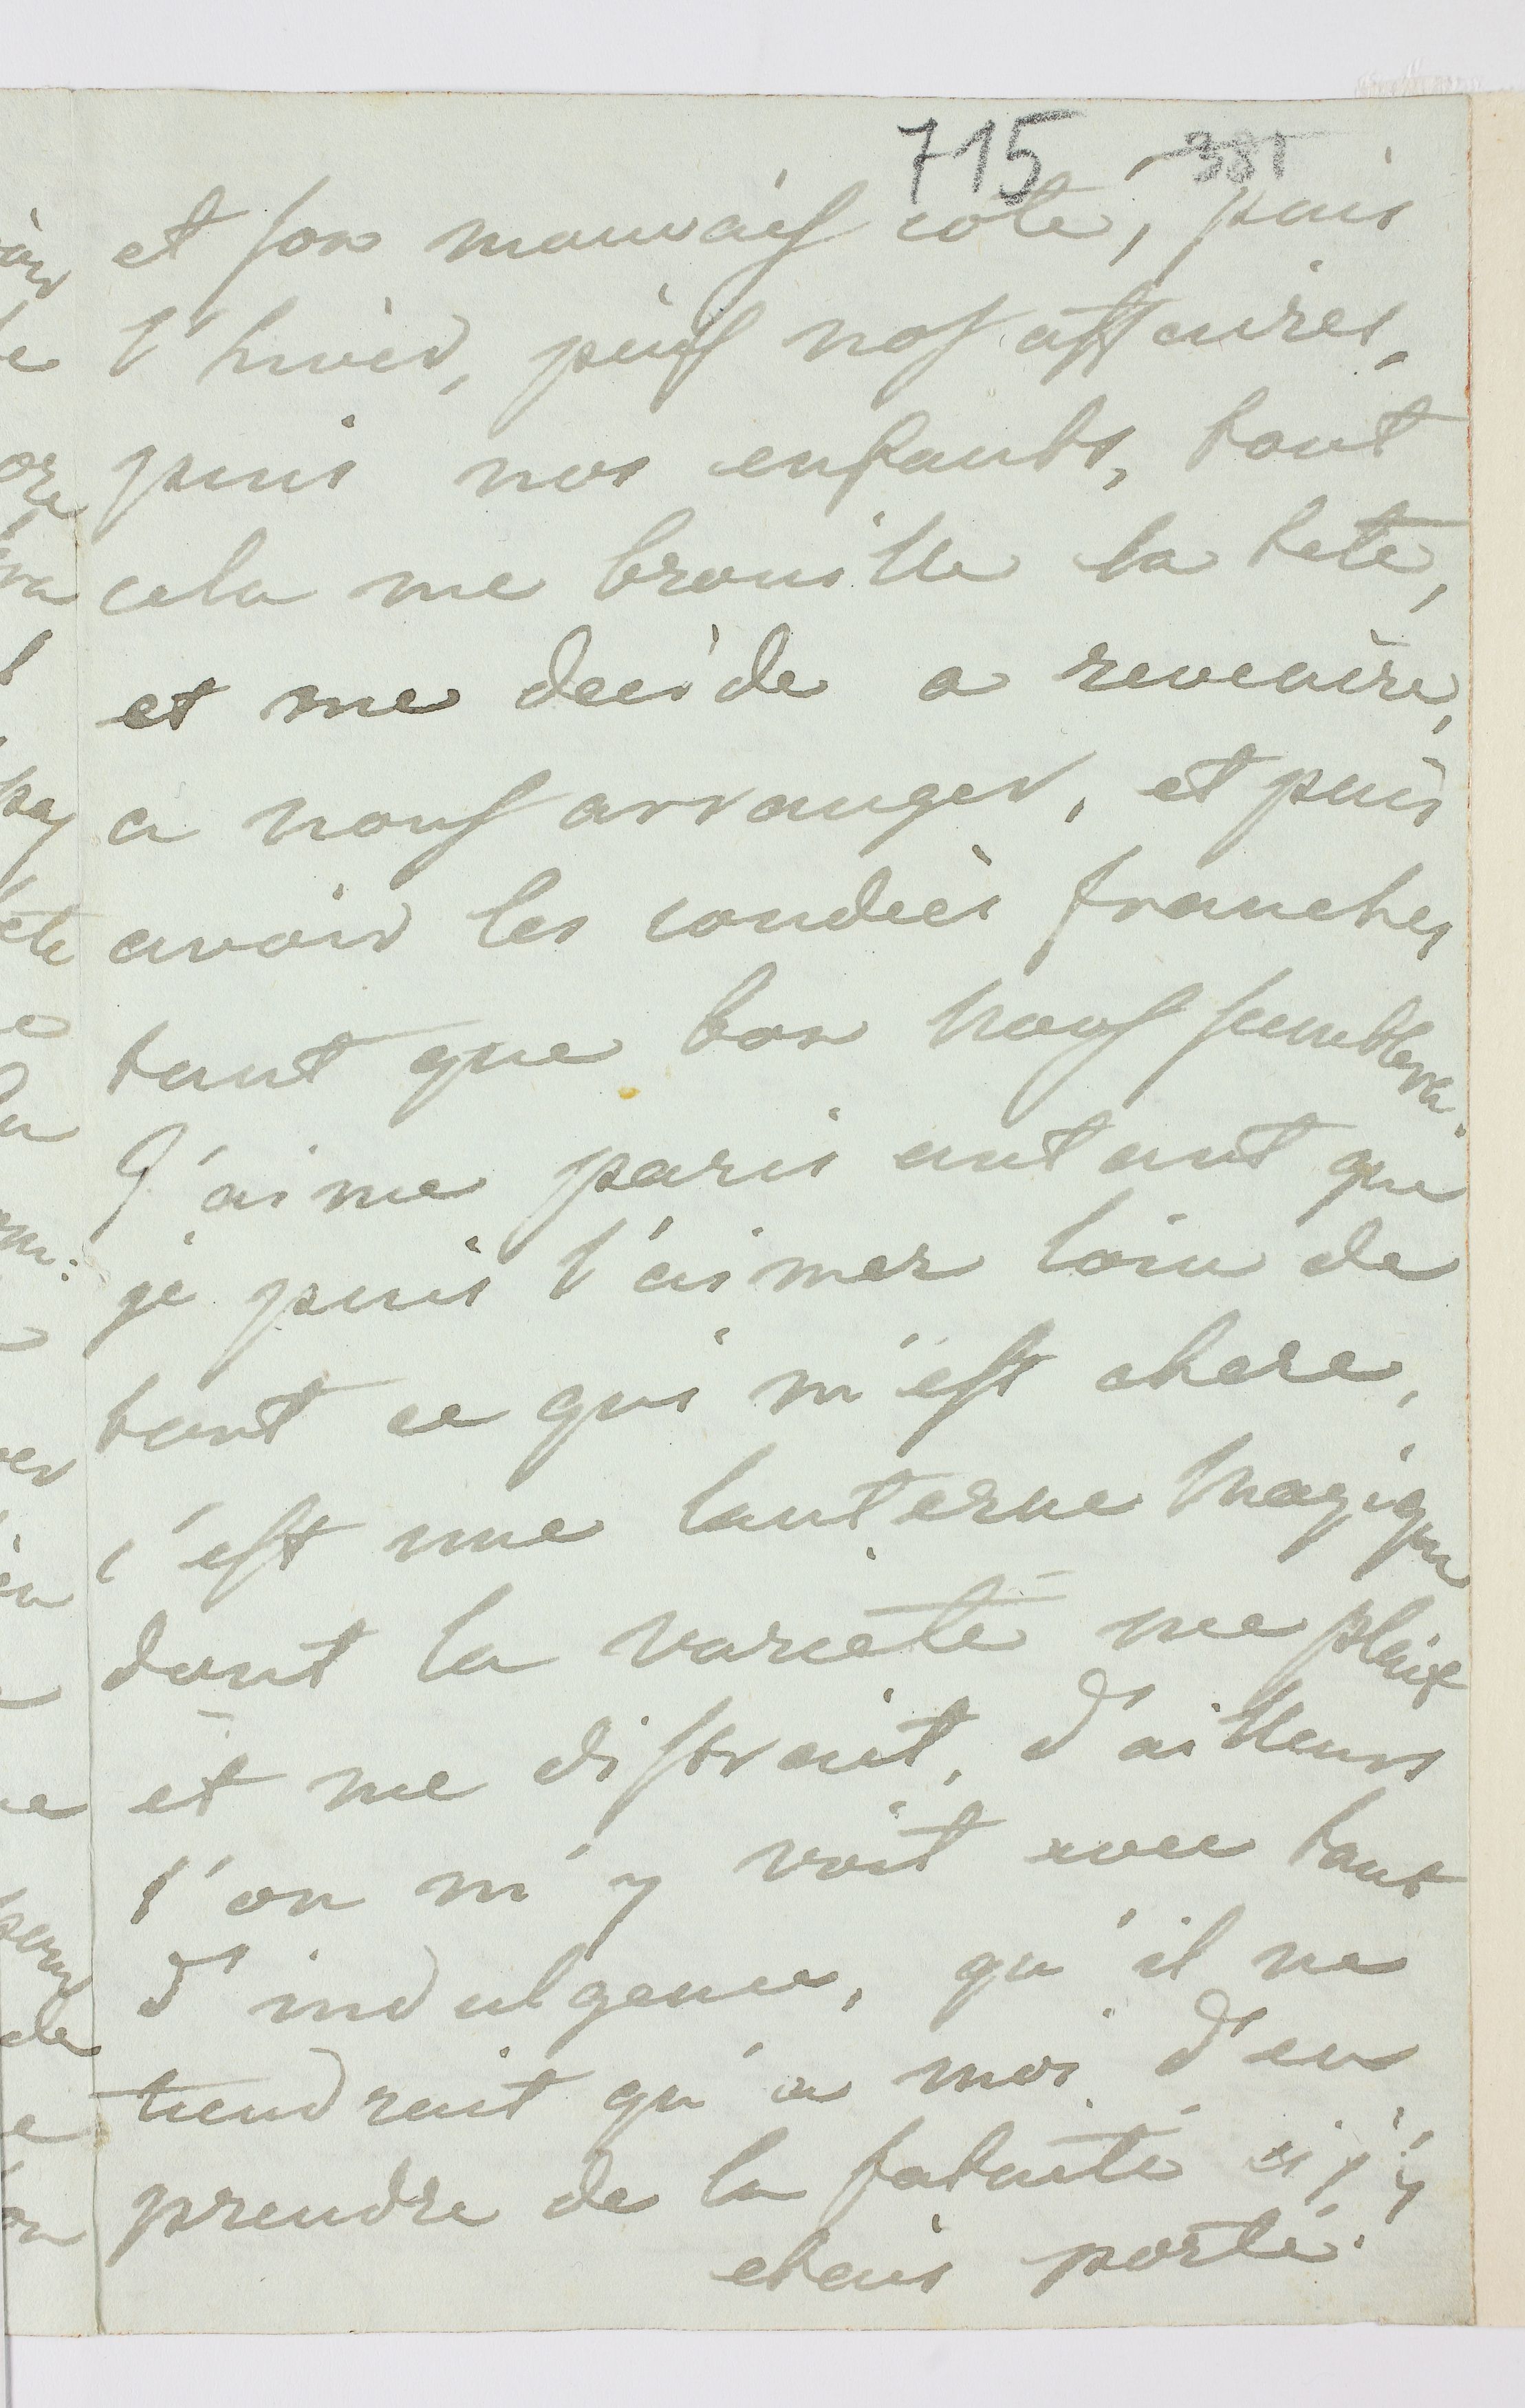 715 381
et son mauvais coté, puis
l'hiver, puis nos affaires,
puis nos enfants, tout
cela me brouille la tete,
et me decide a revenire,
a nous arranger, et puis
avoir les coudées franches
tant que bon nous semblera.
J'aime paris autant que
je puis l'aimer loin de
tout ce qui m'est chere,
c'est une lanterne magique
dont la varieté me plait
et me distrait, d'ailleurs
l'on m'y voit avec tant
d'indulgence, qu'il ne
tiendrait qu'a moi d'en
prendre de la fatuité si j'y
etais porté.